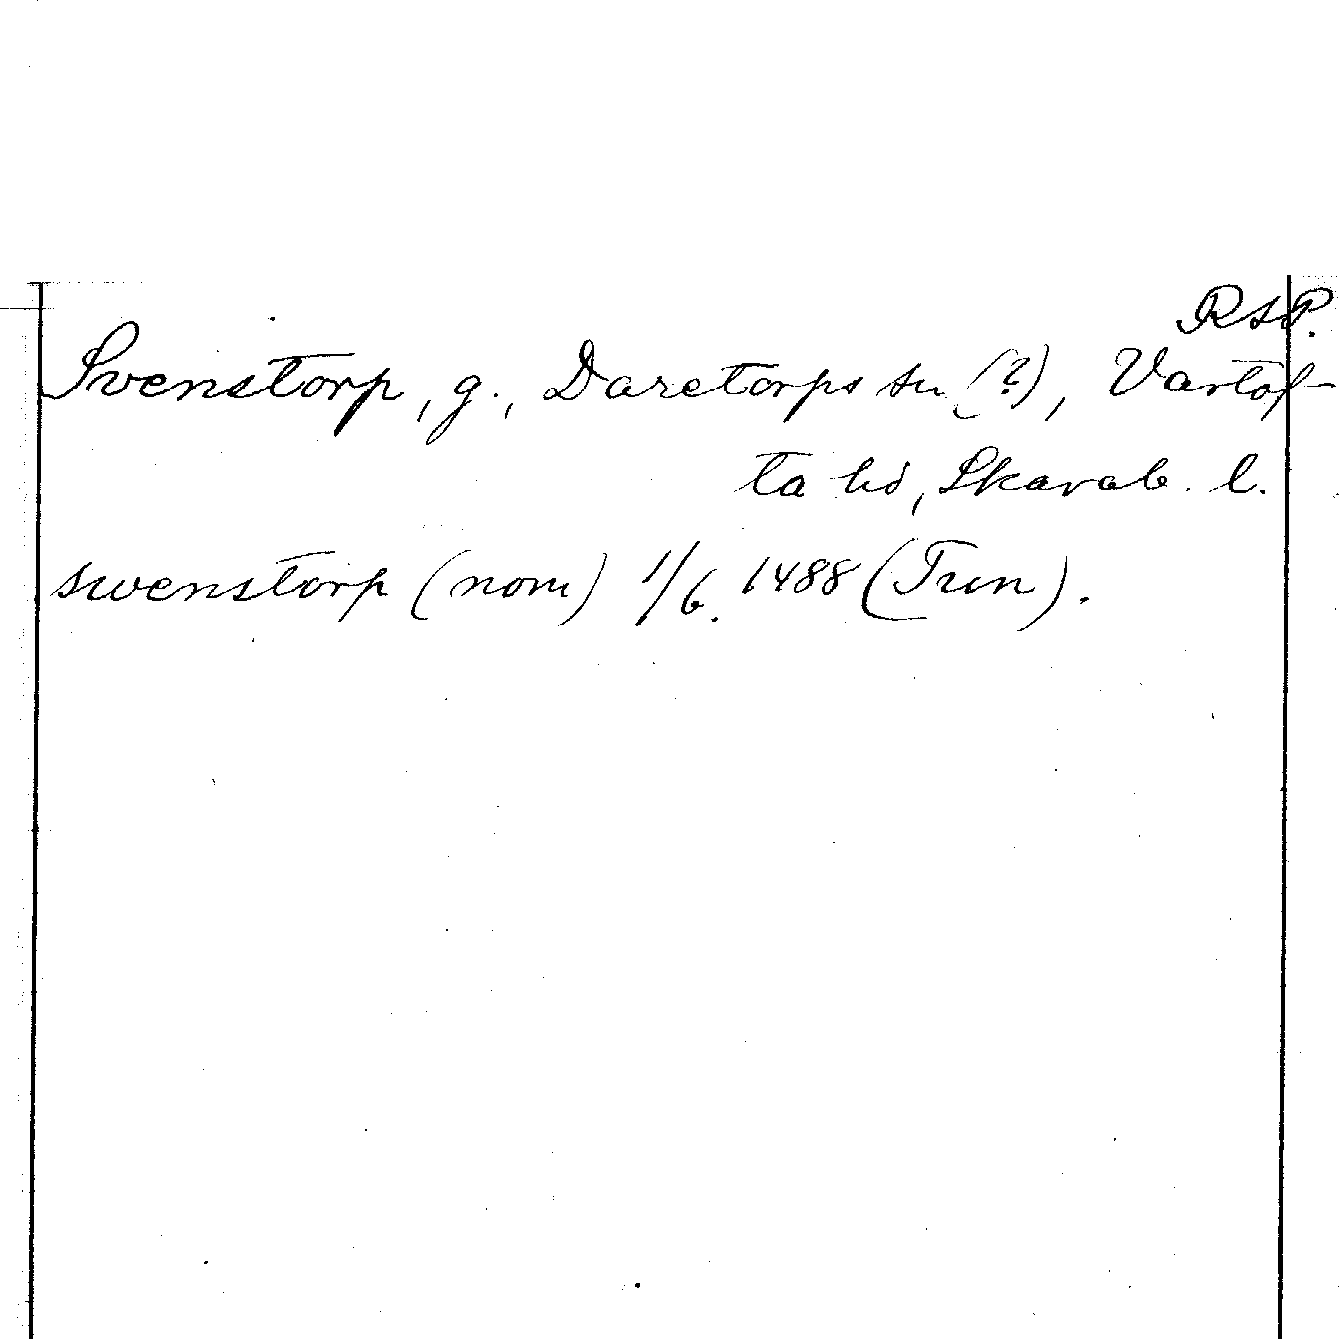 RAP.
Svenstorp, g., Daretorps sn (?), Vartof-
ta hd, Skarab. l.
swenstorp (nom) 1/6. 1488 (Tun).